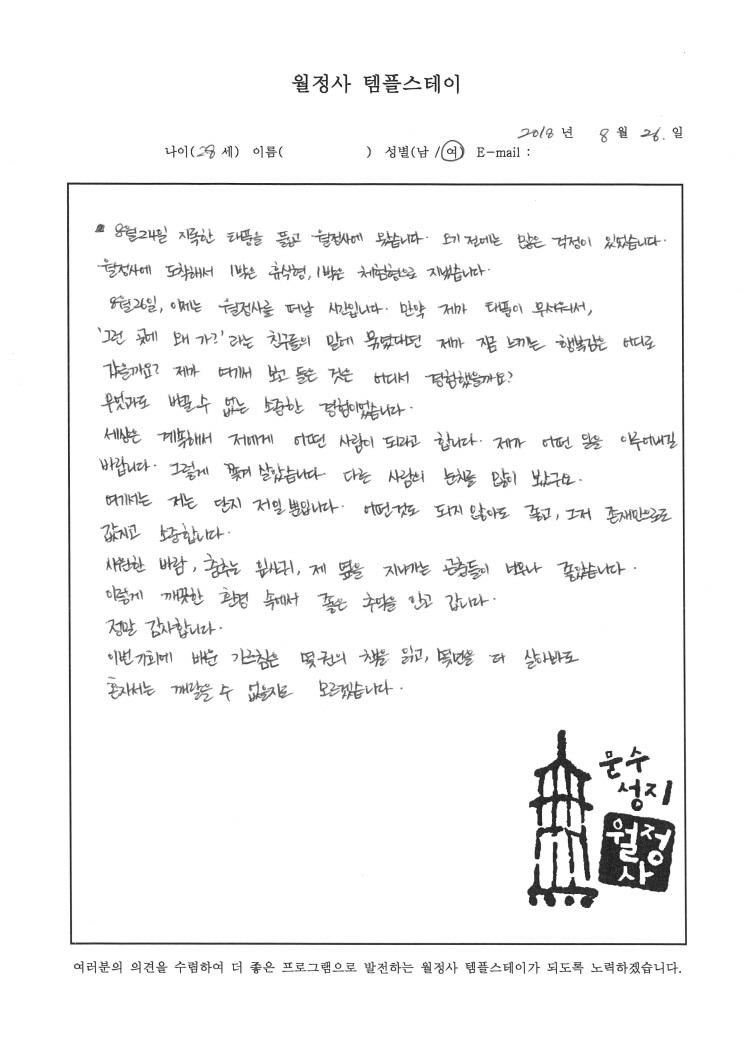 월정사 템플스테이
2018 년 8 월 26. 일
나이(28 세) 이름( ) 성별(남 /여) E-mail :
8월24일 지독한 태풍을 뚫고 월정사에 왔습니다. 오기 전에는 많은 걱정이 있었습니다.
월정사에 도착해서 1박은 휴식형, 1박은 체험형으로 지냈습니다.
8월26일, 이제는 월정사를 떠날 시간입니다. 만약 제가 태풍이 무서워서,
'그런 곳에 왜 가?' 라는 친구들의 말에 묶였다면 제가 지금 느끼는 행복감은 어디로
갔을까요? 제가 여기서 보고 들은 것은 어디서 경험했을까요?
무엇과도 바꿀 수 없는 소중한 경험이었습니다.
세상은 계속해서 저에게 어떤 사람이 되라고 합니다. 제가 어떤 일을 이루어내길
바랍니다. 그렇게 쫓겨 살았습니다. 다른 사람의 눈치를 많이 봤구요.
여기서는 저는 단지 저일 뿐입니다. 어떤것도 되지 않아도 좋고, 그저 존재만으로도
값지고 소중합니다.
시원한 바람, 춤추는 잎사귀, 제 옆을 지나가는 곤충들이 너무나 좋았습니다.
이렇게 깨끗한 환경 속에서 좋은 추억을 안고 갑니다.
정말 감사합니다.
이번 기회에 배운 가르침은 몇 권의 책을 읽고, 몇년을 더 살아봐도
혼자서는 깨달을 수 없을지도 모르겠습니다.
문수
성지
월정
사
여러분의 의견을 수렴하여 더 좋은 프로그램으로 발전하는 월정사 템플스테이가 되도록 노력하겠습니다.